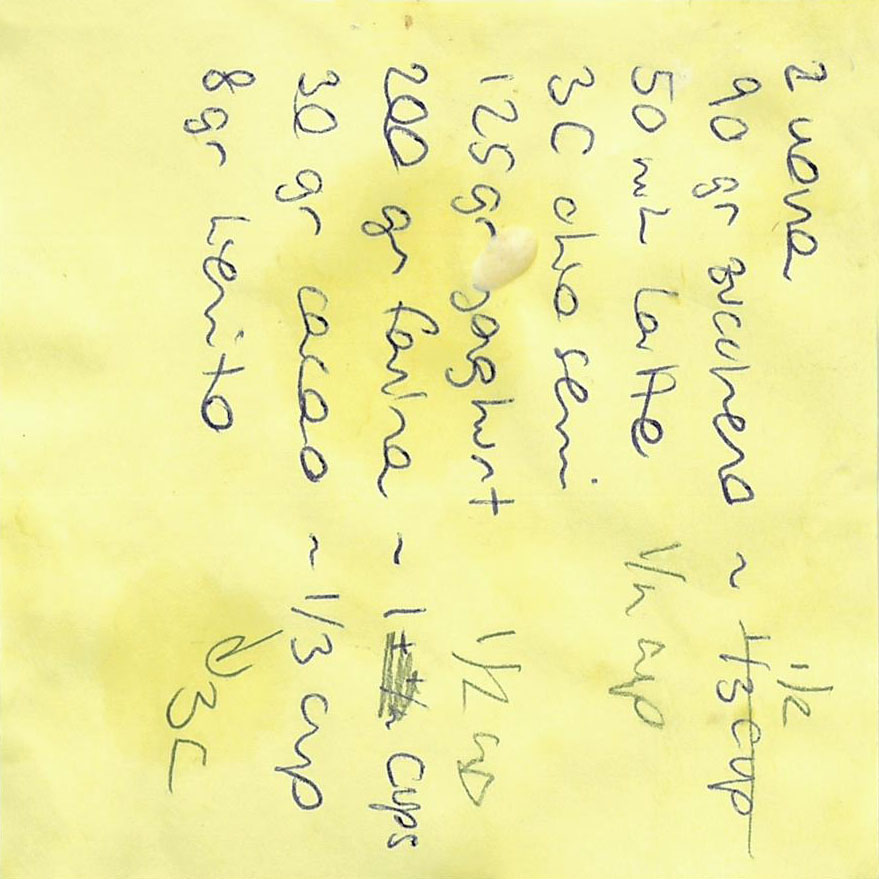 2 uova
1/2
90 gr zucchero ~ 1/3 cup
50 mL latte 1/4 cup
3C chia semi
125 gr yoghurt 1/2 cup
200 gr farina ~ 1 cups
30 gr cacao ~ 1/3 cup
8 gr lievito
3C